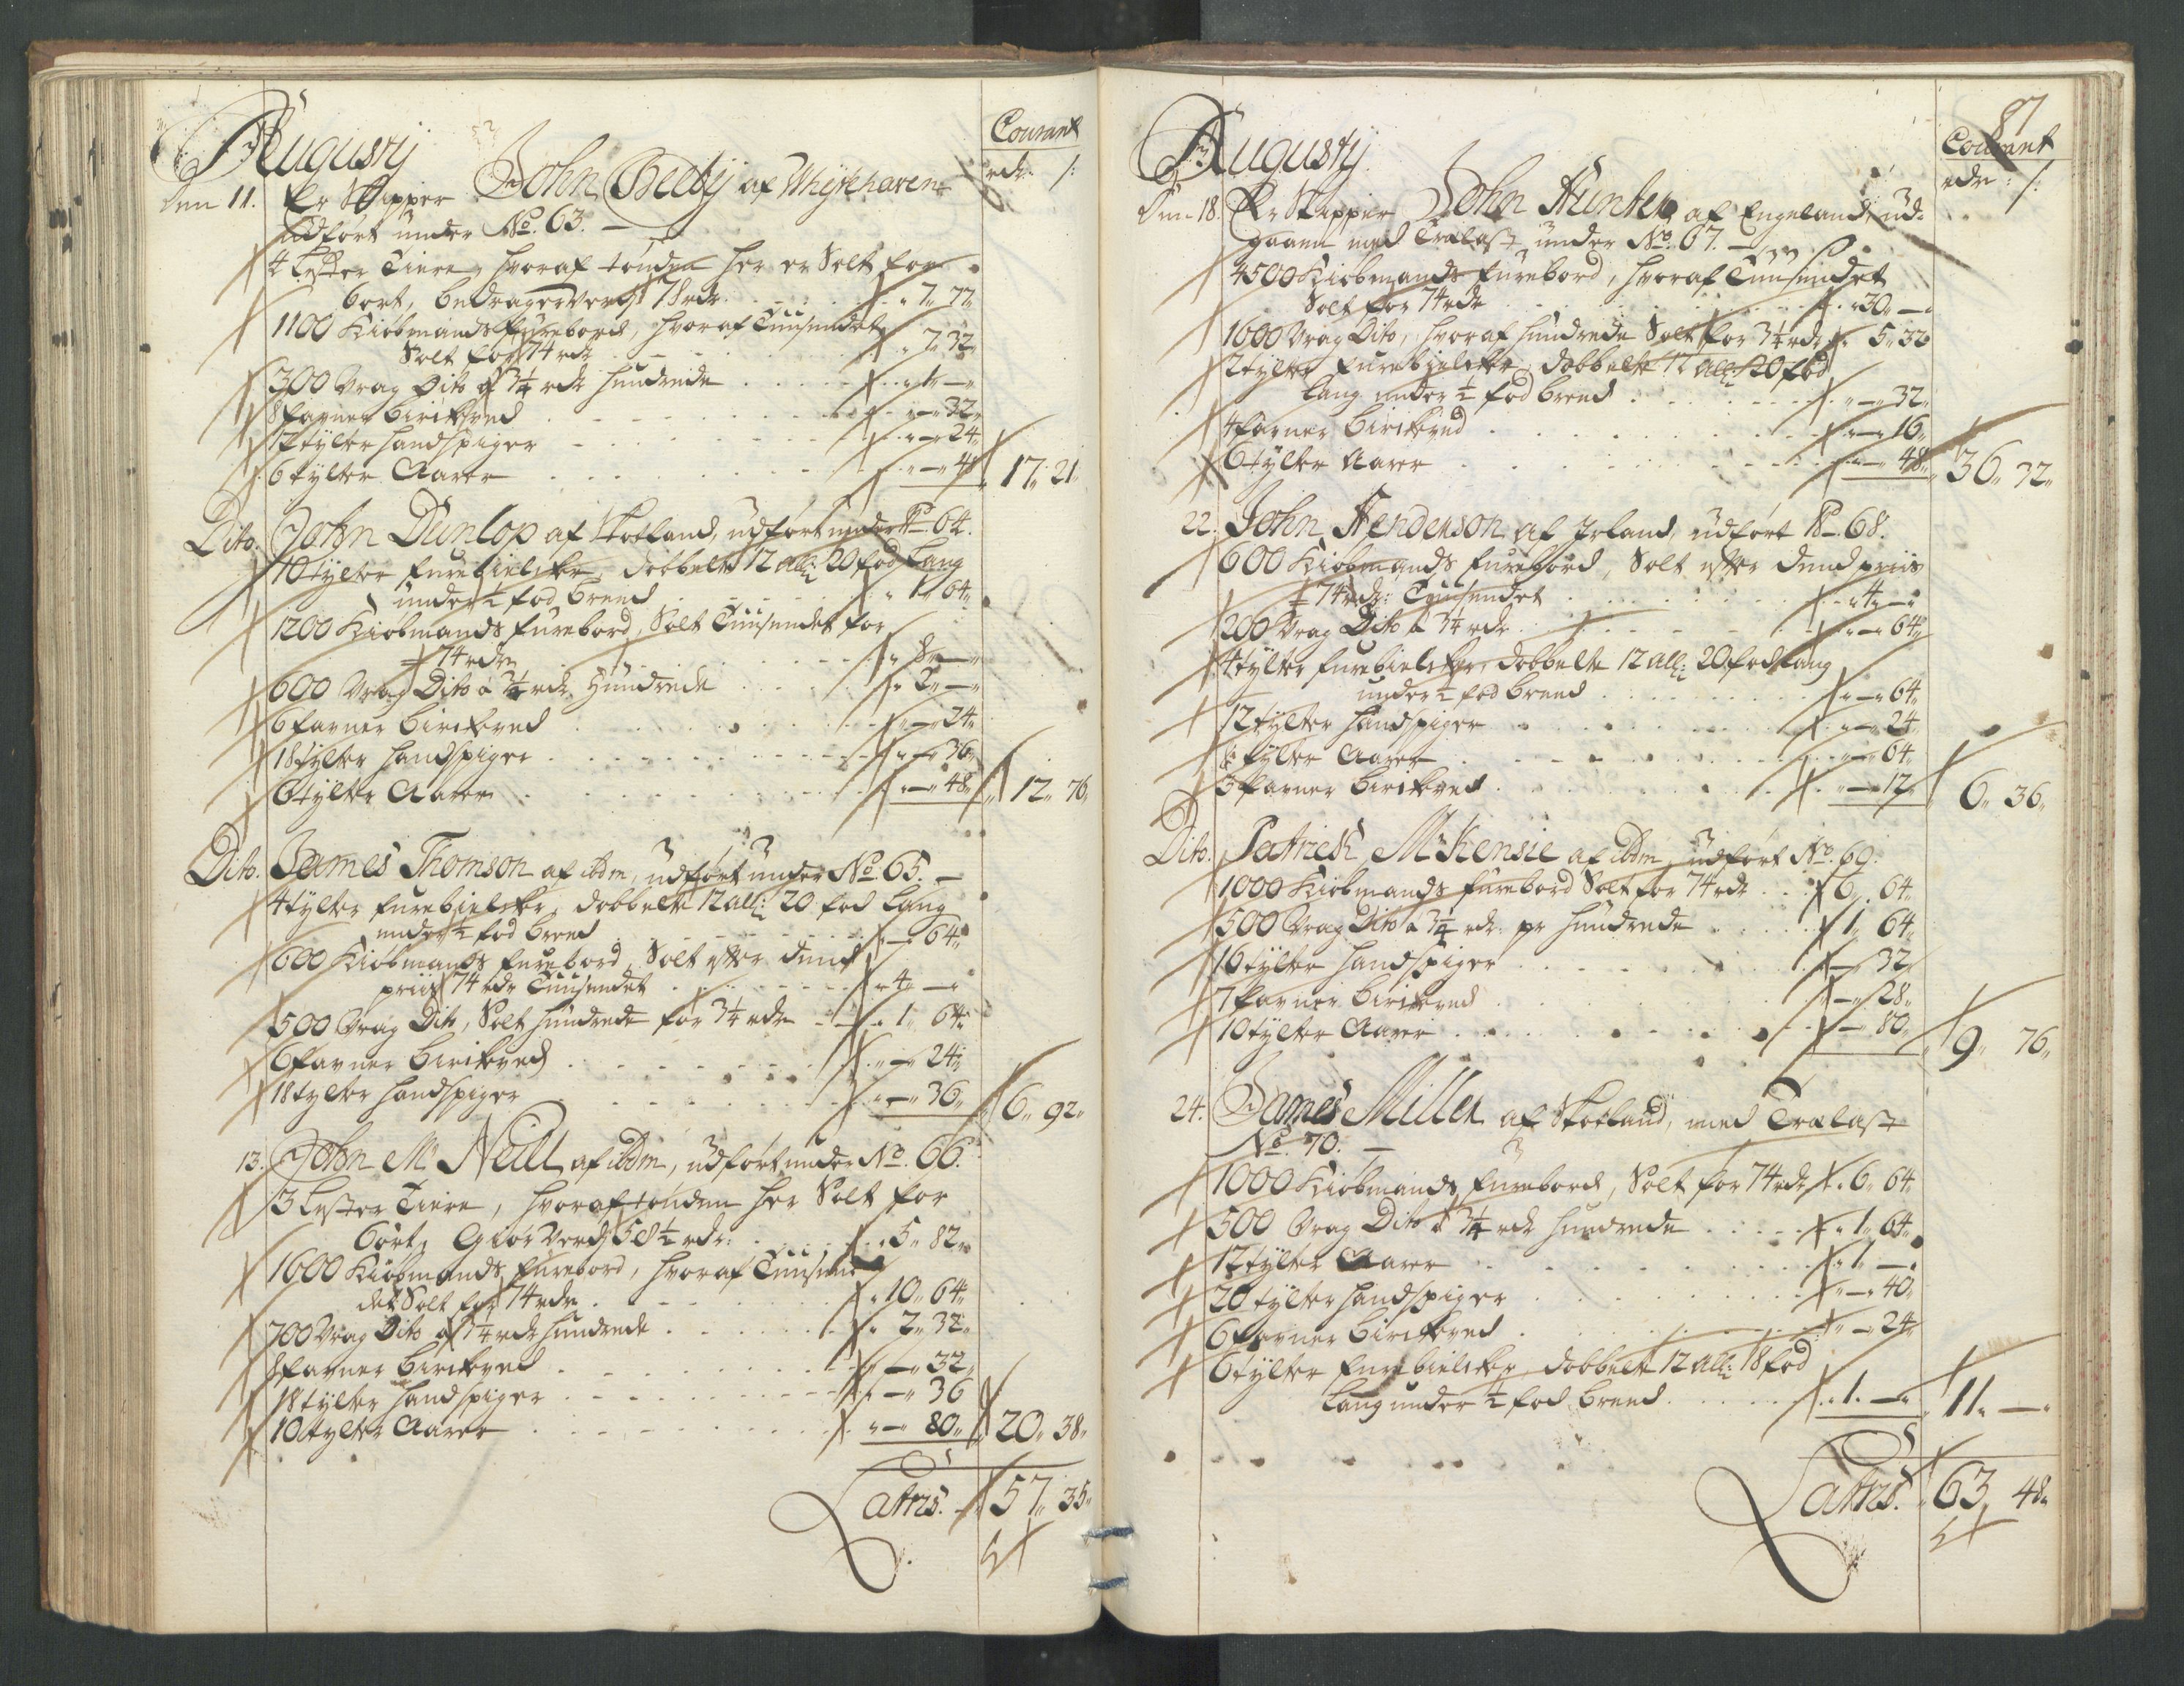 Augustij
Courant
rdr. s:
Den 11. Er Skipper John Beeby af Whytehaven
udført under No. 63.
4 Lester Tiære, hvoraf tønden her er Solt for
6 ort, bedrager verdj 78 rdr. 7 77
1100 Kiøbmands furebord, hvoraf Tuusendet
Solt for 74 rdr 7 32
300 Vrag Dito a 3¼ rdr hundrede 1 —
8 favner birikeved — 32
12 tylter handspiger — 24
6 tylter Aarer — 48 17 21
Dito. John Dunlop af Skotland, udført under No 64.
10 tylter furebielcker, dobbelte 12 all: 20 fod lang
under ½ fod breed 1 64
1200 Kiøbmands furebord, Solt Tuusendet for
74 rdr 8 —
600 Vrag Dito a 3¼ rdr hundrede 2 —
6 favner birikeved — 24
18 tylter handspiger — 36
6 tylter Aarer — 48 12 76
Dito. James Thomson af ibdm, udført under No. 65.
4 tylter furebielcker, dobbelte 12 all: 20 fod lang
under ½ fod breed — 64
600 Kiøbmands furebord, Solt efter dend
priis 74 rdr Tuusendet 4 —
500 Vrag Dito, Solt hundrede for 3¼ rdr 1 64
6 favner birikeved — 24
18 tylter handspiger — 36 6 92
13. John Mc Neill af ibdm, udført under No. 66.
3 Lester Tiære, hvoraf tønden her Solt for
6 ort, Giør verdj 58½ rdr: 5 82
1600 Kiøbmands furebord, hvoraf Tuusen
det Solt for 74 rdr 10 64
700 Vrag Dito a 3¼ rdr hundrede 2 32
8 favner birikeved — 32
18 tylter handspiger — 36
10 tylter Aarer — 80 20 38
Latris. 57 35
87
Augustij
Courant
rdr: s:
Den 18. Er Skipper John Hunter af Engeland, ud-
gaaen med Trælast under No. 67.
4500 Kiøbmands furebord, hvoraf Tuusendet
Solt for 74 rdr 30 —
1600 Vrag Dito, hvoraf hundrede Solt for 3¼ rdr 5 32
2 tylter furebielcker, dobbelte 12 all: 20 fod
lang under ½ fod breed — 32
4 favner birikeved — 16
6 tylter Aarer — 48 36 32
22. John Henderson af Irland, udført No. 68.
600 Kiøbmands furebord, Solt efter dend priis
74 rdr: Tuusendet 4 —
200 Vrag Dito a 3¼ rdr — 64
4 tylter furebielcker, dobbelte 12 all: 20 fod lang
under ½ fod breed — 64
12 tylter handspiger — 24
8 tylter Aarer — 64
3 favner birikeved — 12 6 36
Dito. Patrick McKensie af ibdm, udført No. 69.
1000 Kiøbmands furebord Solt for 74 rdr 6 64
500 Vrag Dito a 3¼ rdr. pr hundrede 1 64
16 tylter handspiger — 32
7 favner birikeved — 28
10 tylter Aarer — 80 9 76
24. James Miller af Skotland, med Trælast
No. 70.
1000 Kiøbmands furebord, Solt for 74 rdr 6 64
500 Vrag Dito a 3¼ rdr hundrede 1 64
12 tylter Aarer 1 —
20 tylter handspiger — 40
6 favner birikeved — 24
6 tylter furebielcker, dobbelte 12 all: 18 fod
lang under ½ fod breed 1 — 11 —
Latris. 63 48